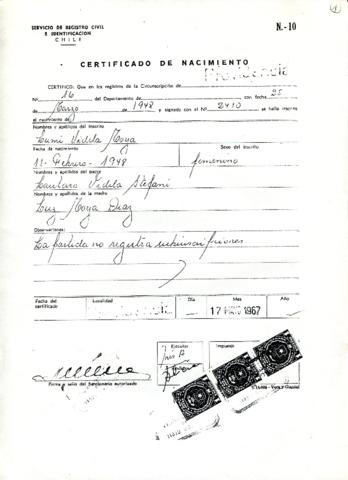 SERVICIO DE REGISTRO CIVIL
E IDENTIFICACION
CHILE
N.-10
CERTIFICADO DE NACIMIENTO
CERTIFICO: Que en los registros de la Circunscripción de Providencia
Nº 16 del Departamento de con fecha 25
de Marzo de 1948 y signado con el Nº 2410 se halla inscrito
el nacimiento de
Nombres y apellidos del inscrito
Lumi Videla Moya
Fecha de nacimiento Sexo del inscrito
11-Febrero-1948 femenino
Nombres y apellidos del padre
Lautaro Videla Stefani
Nombres y apellidos de la madre
Luz Moya Diaz
Observaciones:
La partida no registra
Fecha del certificado Localidad Día Mes Año
17 MAYO 1967
Impuesto
Firma y sello del funcionario autorizado